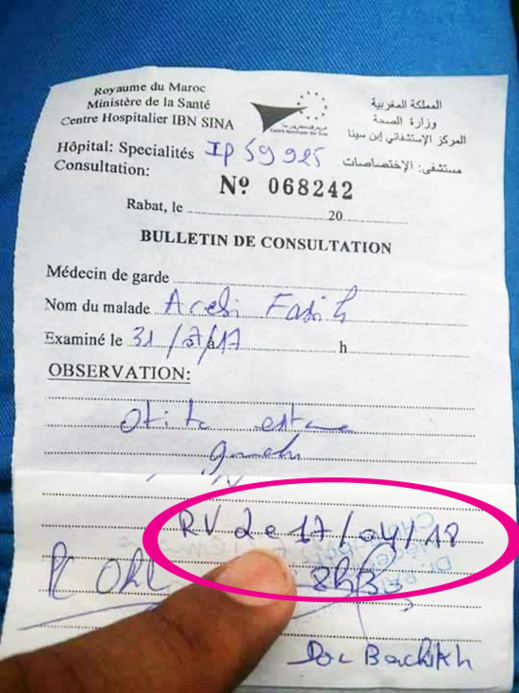 Royaume du Maroc
Ministère de la Santé
Centre Hospitalier IBN SINA
المملكة المغربية
وزارة الصحة
المركز الإستشفائي إبن سينا
Hôpital: Specialités IP 59925
مستشفى: الإختصاصات
Consultation:
Nº 068242
Rabat, le 20
BULLETIN DE CONSULTATION
Médecin de garde
Nom du malade
Examiné le 31/07/17 h
OBSERVATION:
Otite externe
RV le 17/04/18
8h30